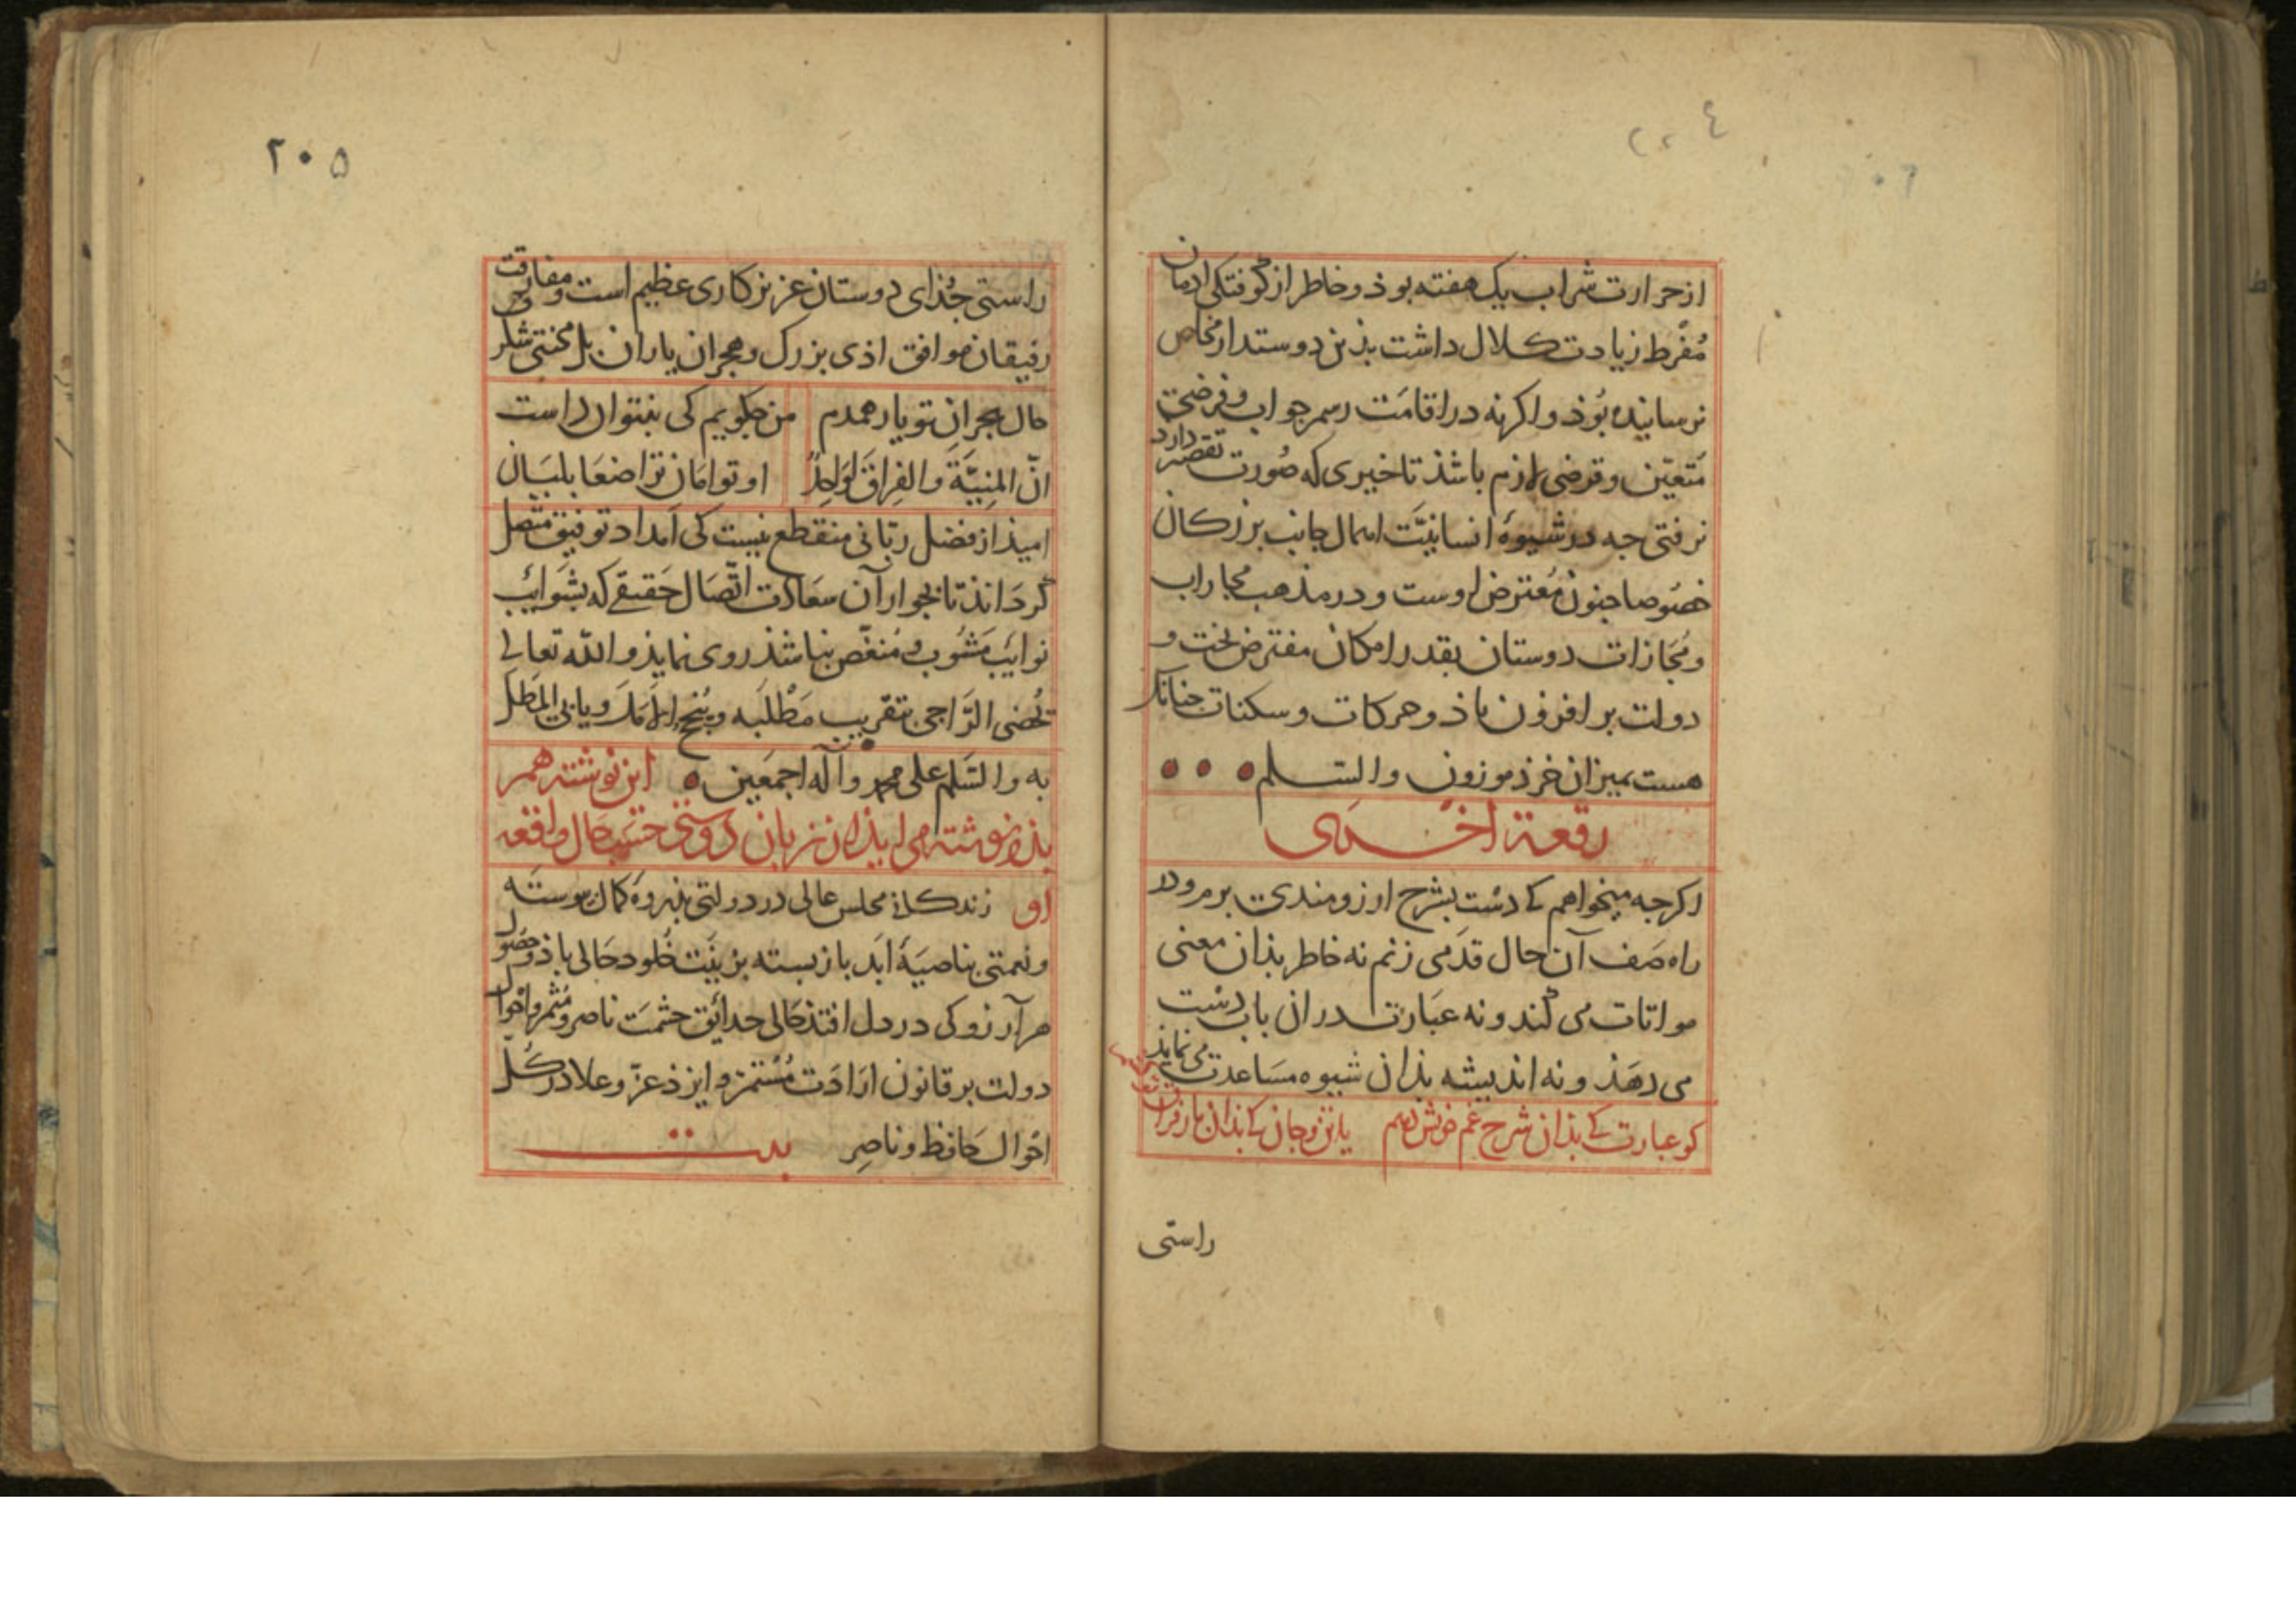 ٢٠٤
از حرارت شراب یک هفته بوذ و خاطر از کوفتکی ادمان
مُفْرَط زیادت کلال داشت بذین دوستدار مخلص
نرسانیده بُوذ و اکرنه در اقامَت رسم جواب و فرضی
مُتعیّن و قرضی لازم باشذ تاخیری که صُورت تقصیر دارد
نرفتی جه در شیوهٔ انسانیَّت اهمال جانب بزرکان
خصُوصا جنون مُعترض اوست و در مذهب محاراب
و مُجَازات دوستان بقدر امکان مفترض بخت و
دولت بر افزون باذ و حرکات و سکنات جنانک
هست بمیزان خرذ موزون والسلم
رقعة اخری
اکرجه میخواهم کی دست بشرح ارزومندی برم و در
راه صَف آن حال قدَمی زنم نه خاطر بذان معنی
مواتات می کُند و نه عبَارت در ان باب دست
می دهَذ و نه اندیشه بذان شیوه مسَاعدت می نمایذ
کو عبارت کی بذان شرح غم خویش دهم یا تن و جان کی بذان بار فراق
راستی
٢٠۵
راستی جُذای دوستان عزیز کاری عظیم است و مفارقت
رفیقان موافق اذی بزرک و هجران یاران بل محنتی
حال هجرانِ تو یار همدم من جکویم کی بنتوان دانست
انّ المنِیَّةَ والفِراقَ لوَاحِدٌ او توامَان تراضعَا بلبَان
امیذ از فضل ربّانی منقطع نیست کی اَمداد توفیق متصل
کردَانذ تا بجوار آن سعَادت اتّصَال حَقیقی که بشوَائِب
نوایَب مَشُوب و مُنغّص نباشذ روی نمایذ و اللّه تعالی
یُحضی الرّاجی بتقریب مَطْلَبه و یُنجح امله و یاتی المطل
به والسّلم علی محمد وآله اجمعَین این نوشته هم
بذو نوشته می ایذ از زبان دوستی حسَب حَال واقعهٔ
او زندکانی مجلس عالی در دولتی بذروَه کمال بیوسته
و نعمتی بناصیَهٔ ابَد باز بسته بزینَت خُلود حَالی باذ و حصُول
هر آرزو کی در دل افتذ حَالی حدائق حشمَت ناصر و مُثمر و احوال
دولت بر قانون ارَادَت مُسْتمر و ایزذ عزّ وعلا در کُلّ
احْوال حَافظ و ناصِر بیت